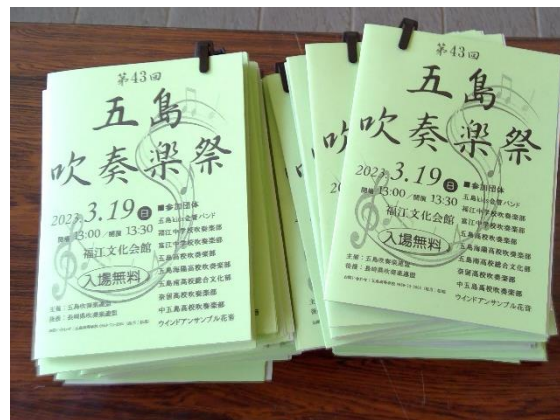 第43回
五島
吹奏楽祭
2023.3.19日
開場 13:00/開演 13:30
福江文化会館
入場無料
■参加団体
五島kids金管バンド
福江中学校吹奏楽部
富江中学校吹奏楽部
五島高校吹奏楽部
五島海陽高校吹奏楽部
五島南高校総合文化部
奈留高校吹奏楽部
中五島高校吹奏楽部
ウインドアンサンブル花音
主催:五島吹奏楽連盟
後援:長崎県吹奏楽連盟
第43回
五島
吹奏楽祭
2023.3.19日
開場 13:00/開演 13:30
福江文化会館
入場無料
■参加団体
五島kids金管バンド
福江中学校吹奏楽部
富江中学校吹奏楽部
五島高校吹奏楽部
五島海陽高校吹奏楽部
五島南高校総合文化部
奈留高校吹奏楽部
中五島高校吹奏楽部
ウインドアンサンブル花音
主催:五島吹奏楽連盟
後援:長崎県吹奏楽連盟